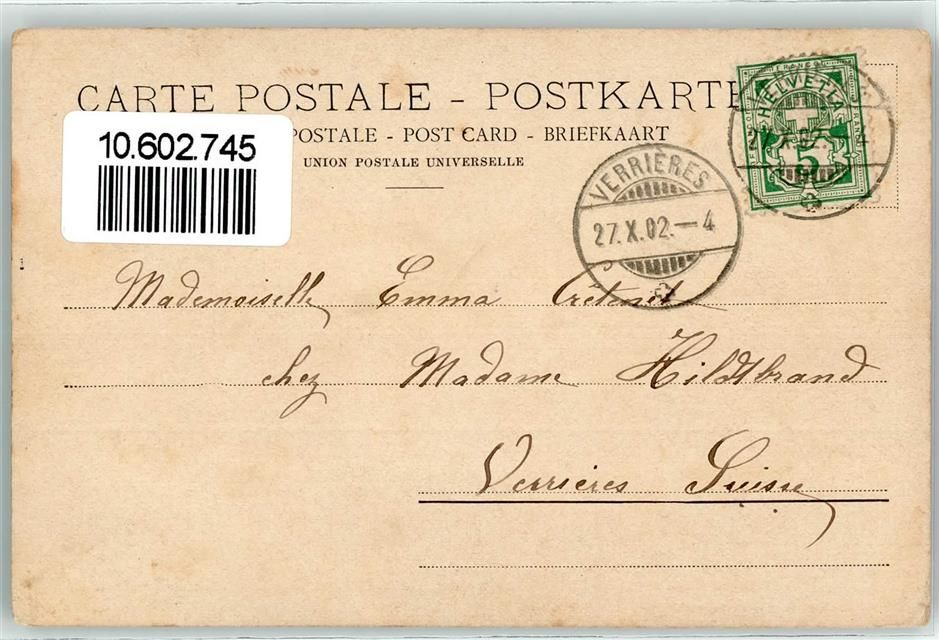 CARTE POSTALE - POSTKARTE
POSTALE - POST CARD - BRIEFKAART
UNION POSTALE UNIVERSELLE
10.602.745
FRANCO
HELVETIA
27.X.02.-4
5
VERRIÈRES
27.X.02.-4
Mademoiselle Emma Cretenet
chez Madame Hildtbrand
Verrières Suisse